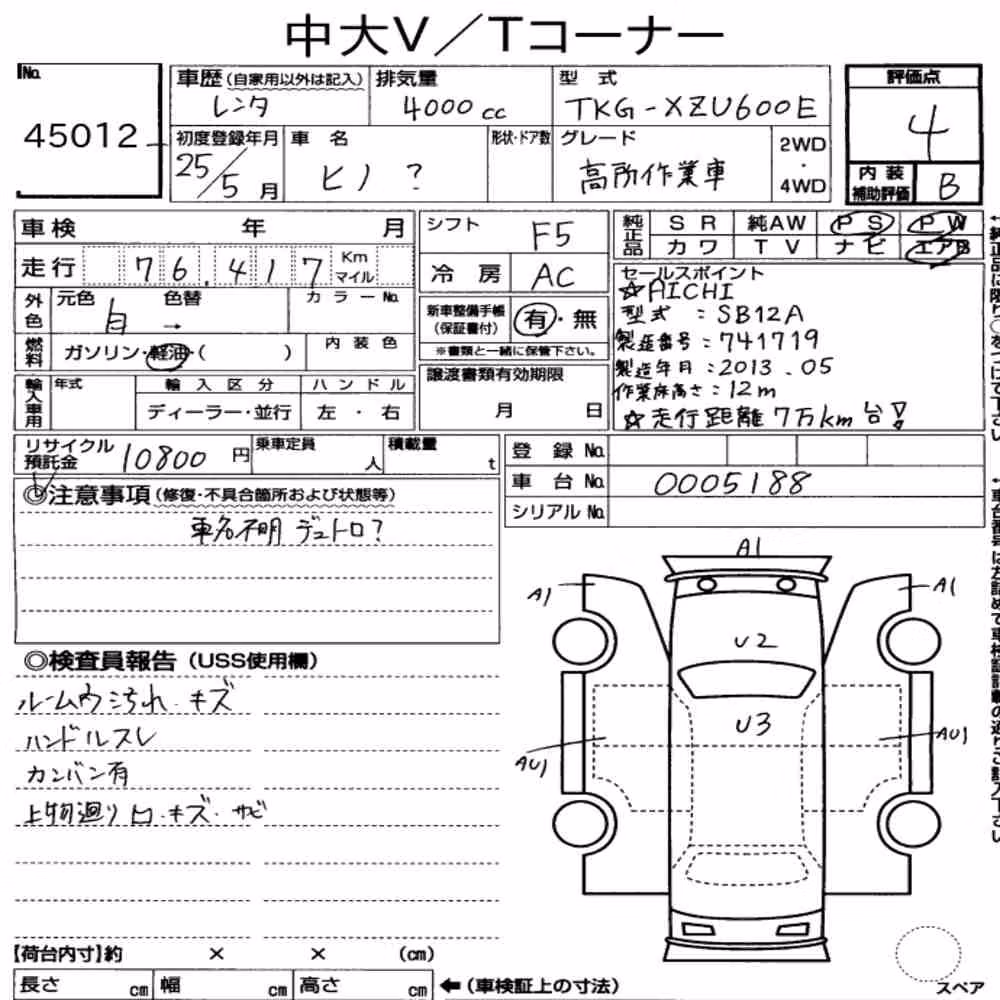 中大V／Tコーナー
No. 45012
車歴（自家用以外は記入） レンタ
排気量 4000 cc
型式 TKG-XZU600E
評価点 4
初度登録年月 25/5月
車名 ヒノ ?
形状・ドア数
グレード 高所作業車
2WD・4WD
内装補助評価 B
車検 年 月
シフト F5
純正品 SR 純AW PS PW
カワ TV ナビ エアB
走行 76,417 Km マイル
冷房 AC
セールスポイント
☆AICHI
型式 ：SB12A
製造番号：741719
製造年月：2013.05
作業床高さ：12m
☆走行距離7万km台!
外色 元色 白 → 色替 カラーNo.
新車整備手帳（保証書付） 有・無
※書類と一緒に保管下さい。
燃料 ガソリン・軽油・（ ） 内装色
譲渡書類有効期限 月 日
輸入車用 年式 輸入区分 ハンドル
ディーラー・並行 左・右
リサイクル預託金 10800 円
乗車定員 人
積載量 t
登録No.
車台No. 0005188
シリアルNo.
◎注意事項（修復・不具合箇所および状態等）
車名不明 デュトロ?
◎検査員報告（USS使用欄）
ルーム内汚れ・キズ
ハンドルスレ
カンバン有
上物廻り凹・キズ・サビ
A1
A1
A1
U2
U3
AU1
AU1
【荷台内寸】約 × × （cm）
長さ cm 幅 cm 高さ cm ←（車検証上の寸法）
スペア
←純正品に限り○をつけて下さい
←車台番号は左詰めで車検証記載の通りご記入下さい